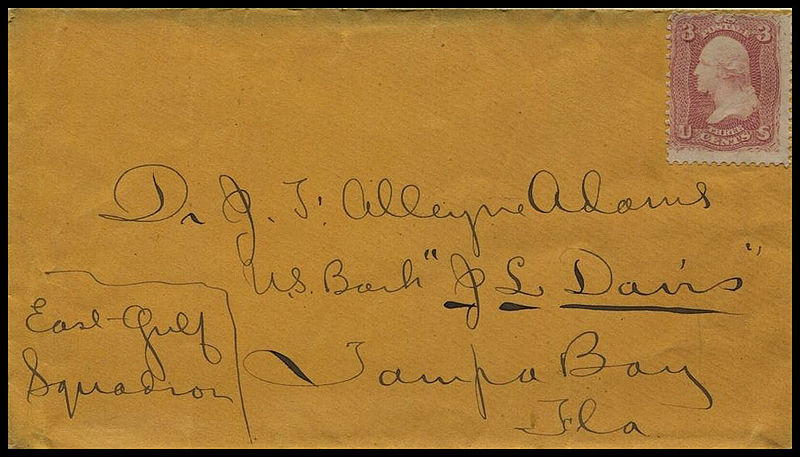 3 3
U.S. POSTAGE
THREE
U CENTS S
Dr J. T. Alleyne Adams
U.S. Bark "J L Davis"
East Gulf
Squadron
Tampa Bay
Fla